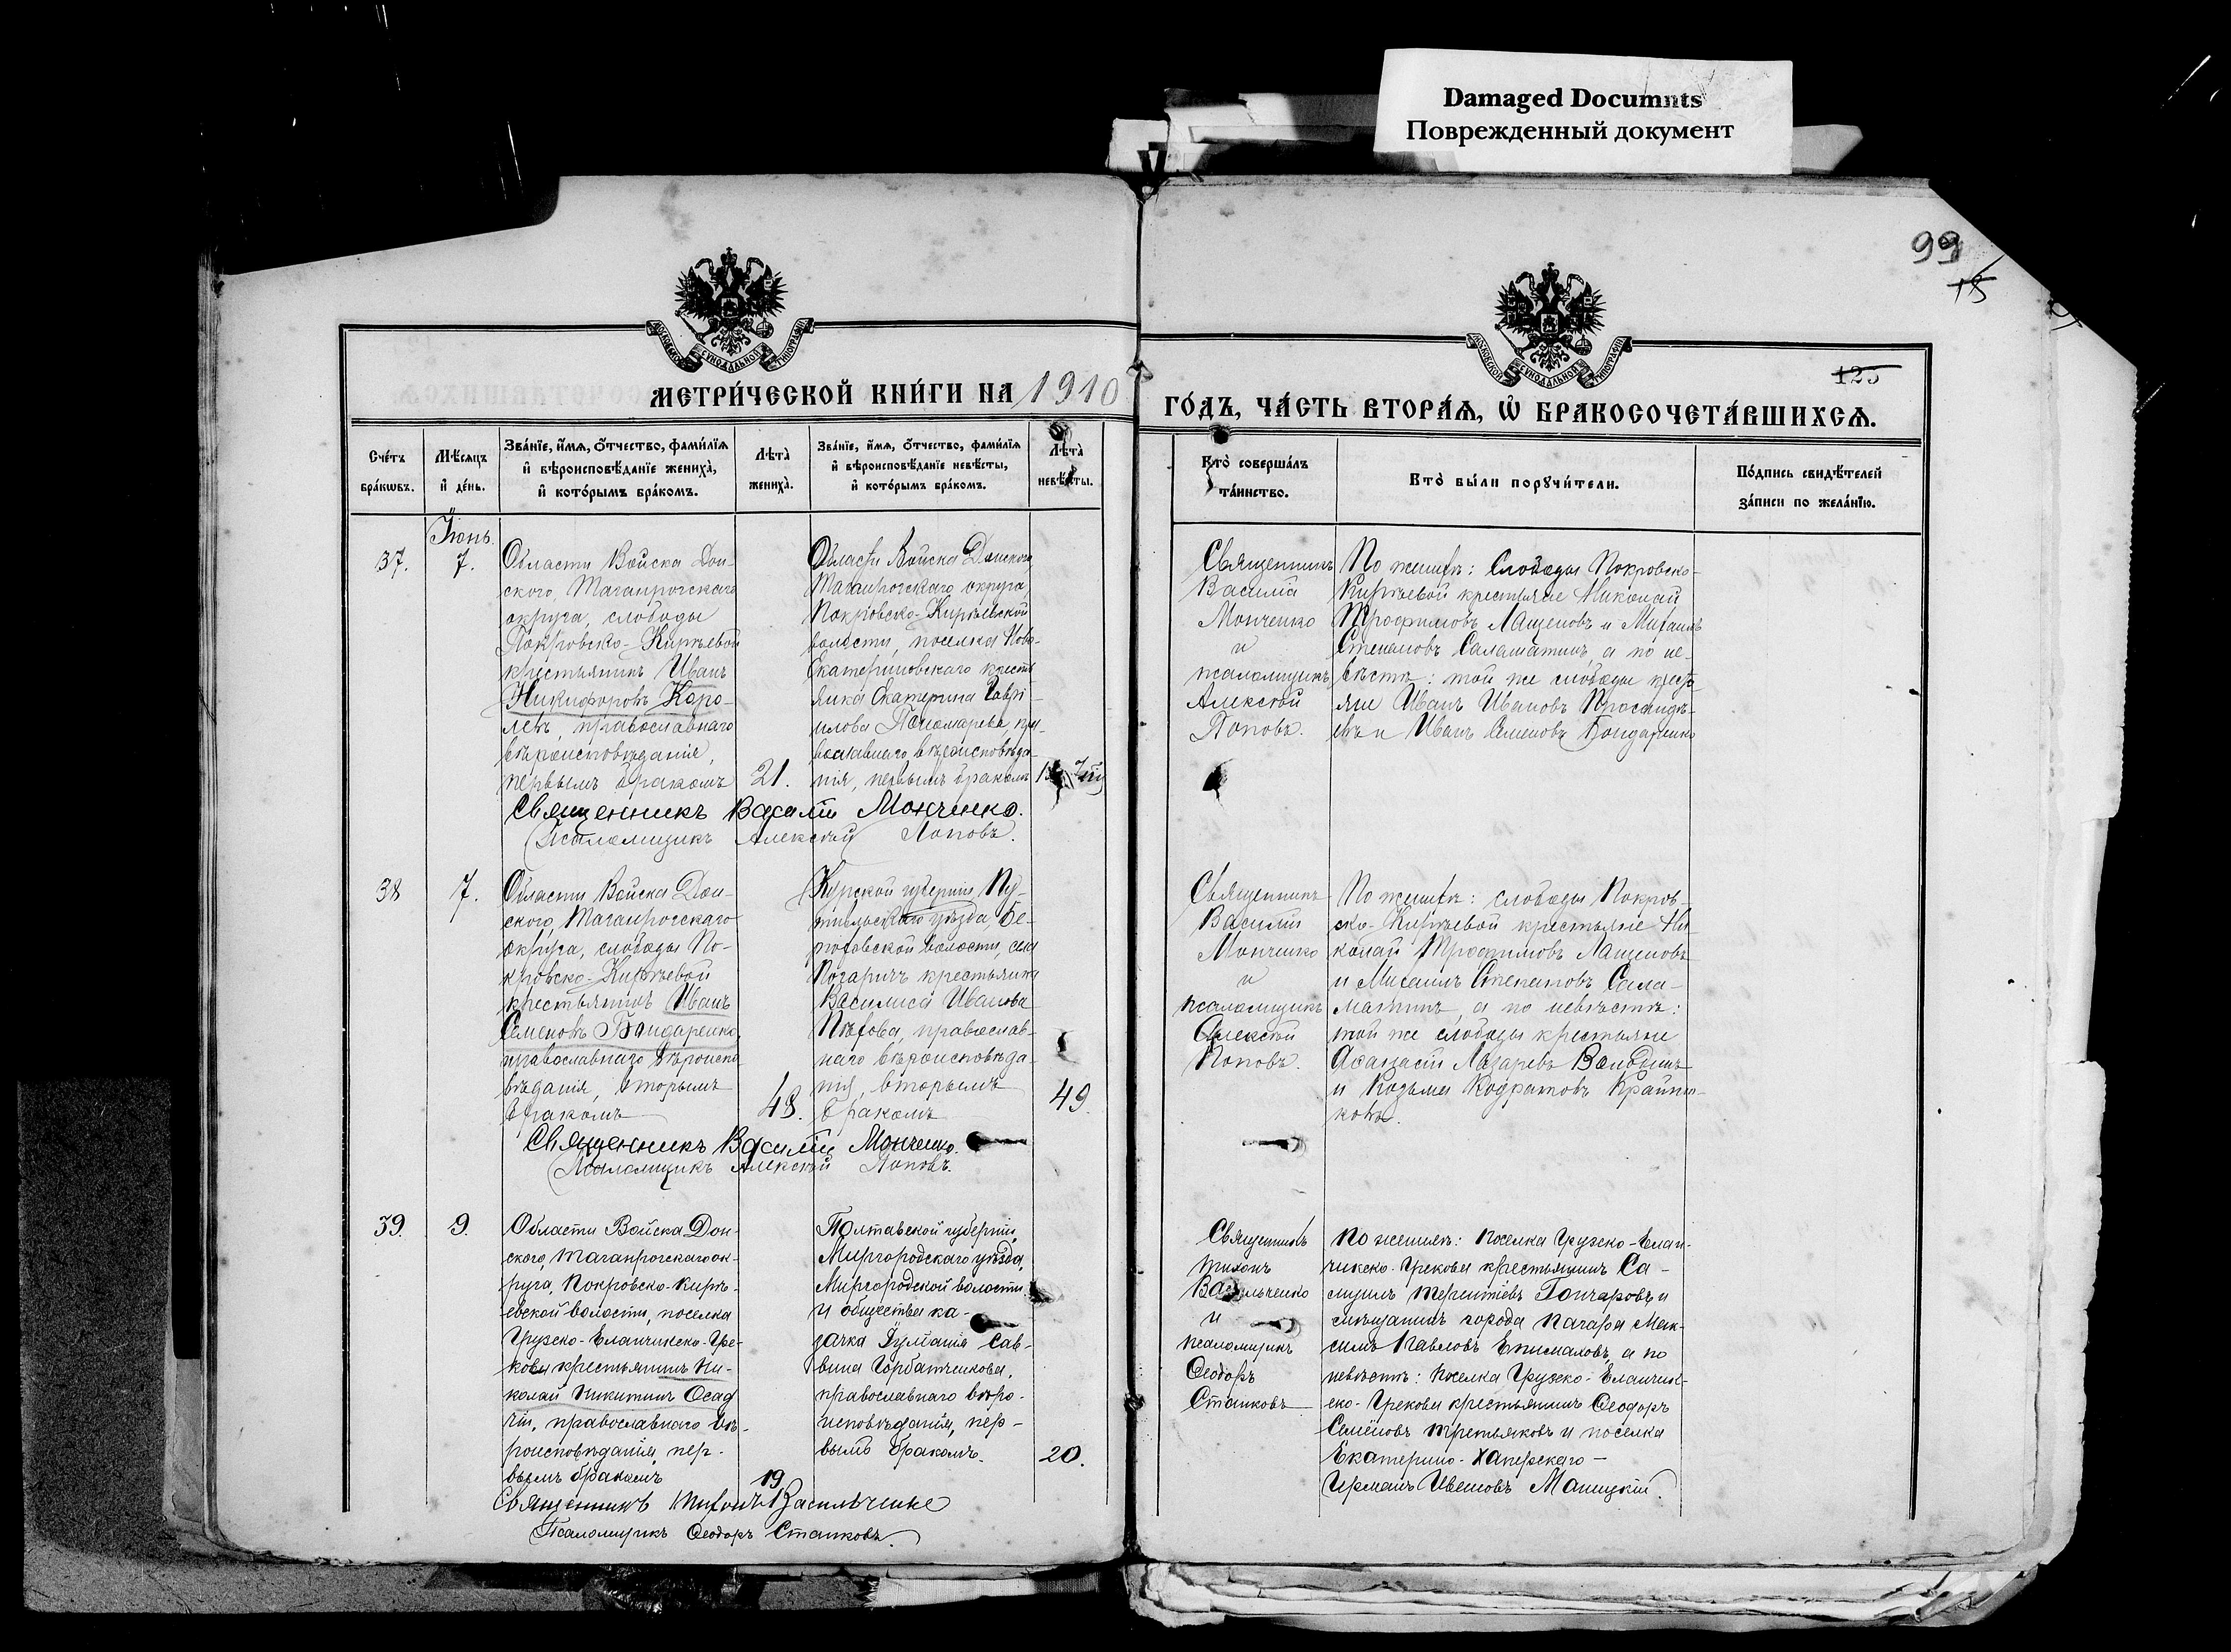 Damaged Documnts
Поврежденный документ
99
15
125
МЕТРИ́ЧЕСКОЙ КНИ́ГИ НА 1910
ГО́ДЪ, ЧА́СТЬ ВТОРА́Ѧ, Ѽ БРАКОСОЧЕТА́ВШИХСѦ.
Сче́тъ бра́кѡвъ.
Мѣ́сѧцъ и҆ де́нь.
Зва́нїе, и҆́мѧ, ѻ҆́тчество, фами́лїѧ и҆ вѣроисповѣ́данїе жениха̀, и҆ кото́рымъ бра́комъ.
Лѣта̀ жениха̀.
Зва́нїе, и҆́мѧ, ѻ҆́тчество, фами́лїѧ и҆ вѣроисповѣ́данїе невѣ́сты, и҆ кото́рымъ бра́комъ.
Лѣта̀ невѣ́сты.
Кто̀ соверша́лъ та́инство.
Кто̀ бы́ли порꙋчи́тели.
По́дпись свидѣ́телей за́писи по жела́нїю.
Іюнь.
37.
7.
Области Войска Дон-
ского, Таганрогскаго
округа, слободы
Покровско-Кирѣевой
крестьянинъ Иванъ
Никифоровъ Коро-
левъ, православнаго
вѣроисповѣданія,
первымъ бракомъ
21.
Области Войска Донского
Таганрогскаго округа,
Покровско-Кирѣевской
волости, поселка Ново-
Екатериновскаго кресть
янка Екатерина Гаврі-
илова Пономарева, пра-
вославнаго вѣроисповѣда-
нія, первымъ бракомъ
Священникъ Василій Мончико.
Псаломщикъ Алексѣй Поповъ.
Священникъ
Василій
Мончико
и
псаломщикъ
Алексѣй
Поповъ.
По женихѣ: Слободы Покровско-
Кирѣевой крестьяне Николай
Трофимовъ Лащеновъ и Михаилъ
Степановъ Саламатинъ, а по не-
вѣстѣ: той же слободы кресть
яне Иванъ Ивановъ
евъ и Иванъ Семеновъ Бондаренко
38
7.
Области Войска Дон-
ского, Таганрогскаго
округа, слободы По-
кровско-Кирѣевой
крестьянинъ Иванъ
Семеновъ Бондаренко,
православнаго вѣроиспо-
вѣданія, вторымъ
бракомъ
48.
Курской губерніи Пу-
тивльскаго уѣзда, Бе-
волости, села
крестьянка
Василиса Иванова
православ-
наго вѣроисповѣда-
нія, вторымъ
бракомъ
49.
Священникъ Василій Мончико.
Псаломщикъ Алексѣй Поповъ.
Священникъ
Василій
Мончико
и
псаломщикъ
Алексѣй
Поповъ.
По женихѣ: слободы Покров-
ско-Кирѣевой крестьяне Ни-
колай Трофимовъ Лащеновъ
и Михаилъ Степановъ Сала-
матинъ, а по невѣстѣ:
той же слободы крестьяне
Аѳанасій Лазаревъ
и Козьма Кодратовъ Крайню-
ковъ.
39.
9.
Области Войска Дон-
ского, Таганрогскаго ок-
руга, Покровско-Кирѣ-
евской волости, поселка
Грузско-Еланчикско-Гре-
кова крестьянинъ Ни-
колай Никитинъ Осад
чій, православнаго вѣ-
роисповѣданія, пер-
вымъ бракомъ
19
Полтавской губерніи,
Миргородскаго уѣзда,
Миргородской волости
и общества ка-
зачка Іуліанія Сав-
вина Горбатенкова,
православнаго вѣро-
исповѣданія, пер-
вымъ бракомъ.
20.
Священникъ Тихонъ Васильченко
Псаломщикъ Ѳеодоръ Станковъ.
Священникъ
Тихонъ
Васильченко
и
псаломщикъ
Ѳеодоръ
Станковъ
По женихѣ: поселка Грузско-Елан-
чикско-Грекова крестьянинъ Са-
муилъ Терентіевъ Гончаровъ и
мѣщанинъ города Мак-
симъ Павловъ а по
невѣстѣ: поселка Грузско-Еланчик-
ско-Грекова крестьянинъ Ѳеодоръ
Семёновъ Третьяковъ и посёлка
Екатерино-Хаперскаго-
Ивановъ Маницкій.